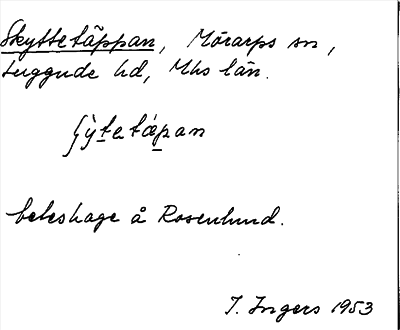 Skyttetäppan, Mörarps sn,
Luggude hd, Mhs län.
ʃỳtetæpan
beteshage å Rosenlund.
I. Ingers 1953